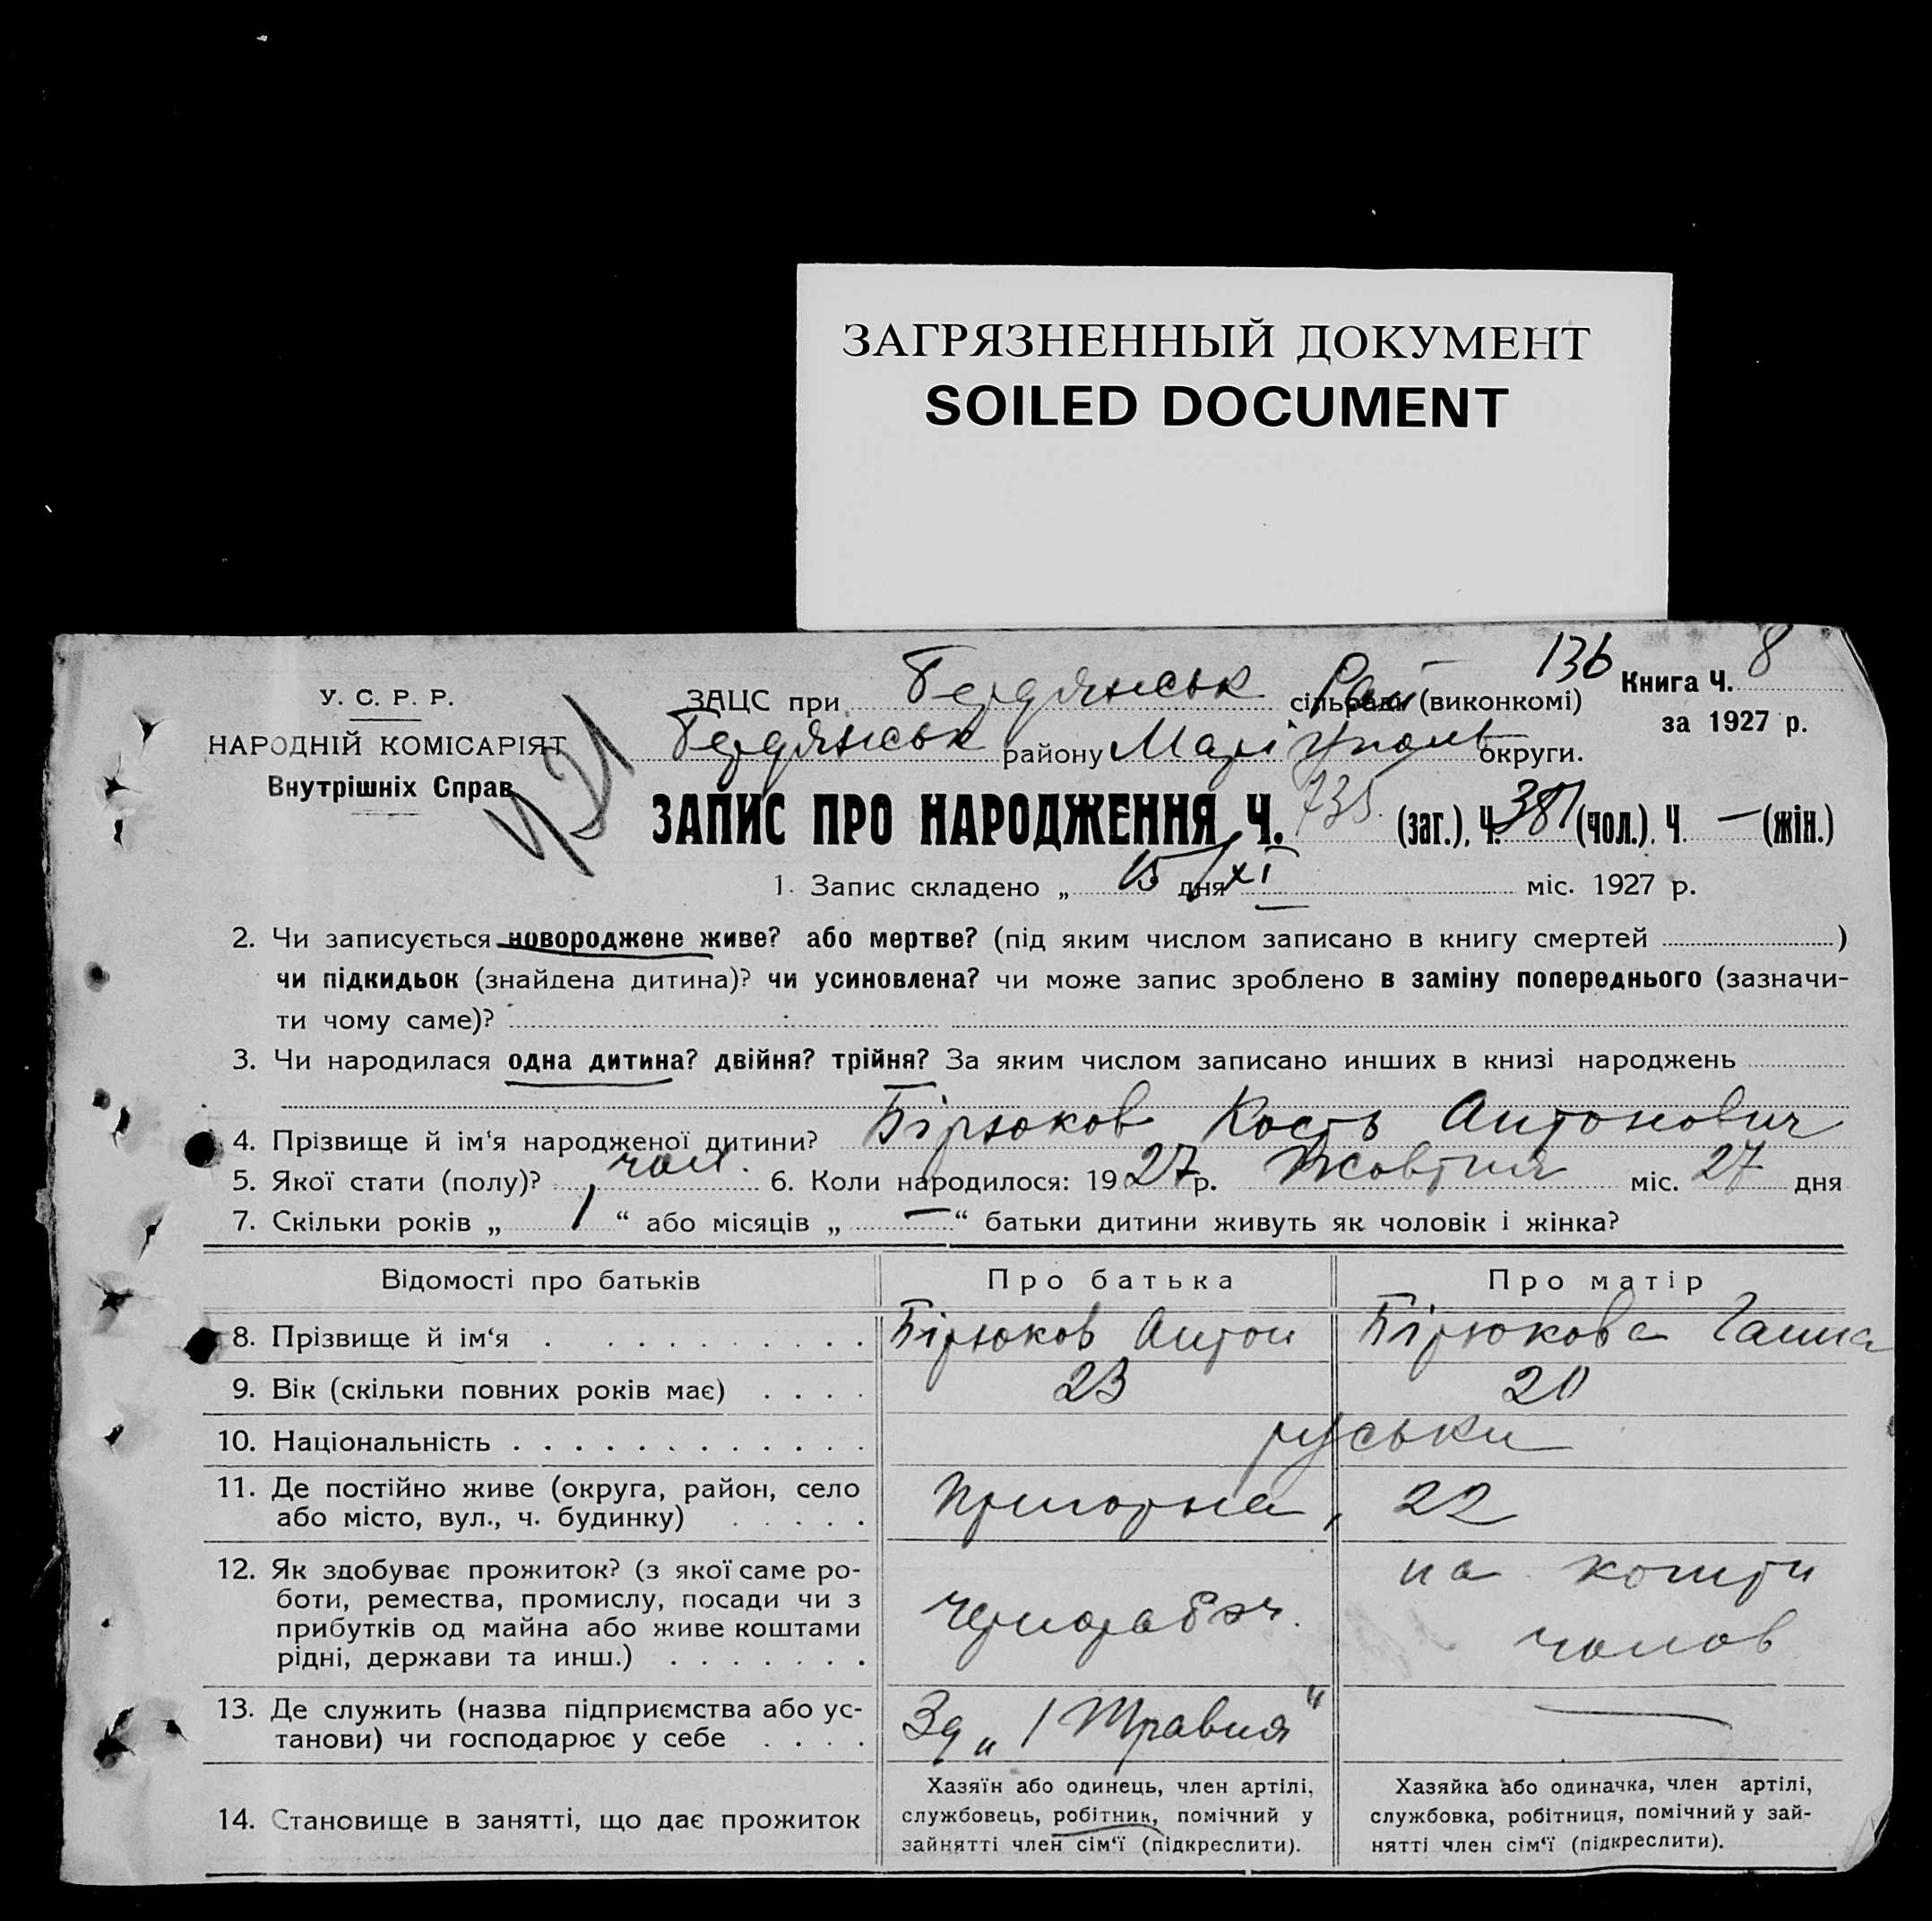 ЗАГРЯЗНЕННЫЙ ДОКУМЕНТ
SOILED DOCUMENT
136
Книга Ч. 8
за 1927 р.
У. С. Р. Р.
НАРОДНІЙ КОМІСАРІЯТ
Внутрішніх Справ
ЗАЦС при Бердянськ сільраді Рай (виконкомі)
Бердянськ району Маріуполь округи.
ЗАПИС ПРО НАРОДЖЕННЯ Ч. 735 (заг.), Ч. 381 (чол.), Ч — (жін.)
1. Запис складено „ 15 дня XI міс. 1927 р.
2. Чи записується новороджене живе? або мертве? (під яким числом записано в книгу смертей )
чи підкидьок (знайдена дитина)? чи усиновлена? чи може запис зроблено в заміну попереднього (зазначи-
ти чому саме)?
3. Чи народилася одна дитина? двійня? трійня? За яким числом записано инших в книзі народжень
4. Прізвище й ім'я народженої дитини? Бірюков Кость Антонович
5. Якої стати (полу)? чол. 6. Коли народилося: 1927 р. Жовтня міс. 27 дня
7. Скільки років „ 1 “ або місяців „ — “ батьки дитини живуть як чоловік і жінка?
Відомості про батьків Про батька Про матір
8. Прізвище й ім'я Бірюков Антон Бірюкова Ганна
9. Вік (скільки повних років має) 23 20
10. Національність руські
11. Де постійно живе (округа, район, село
або місто, вул., ч. будинку) Пригорна, 22
12. Як здобуває прожиток? (з якої саме ро-
боти, ремества, промислу, посади чи з
прибутків од майна або живе коштами
рідні, держави та инш.) чернораб. на кошти чолов
13. Де служить (назва підприємства або ус-
танови) чи господарює у себе Зд „1 Травня“ —
14. Становище в занятті, що дає прожиток
Хазяїн або одинець, член артілі,
службовець, робітник, помічний у
зайнятті член сім'ї (підкреслити).
Хазяйка або одиначка, член артілі,
службовка, робітниця, помічний у зай-
нятті член сім'ї (підкреслити).